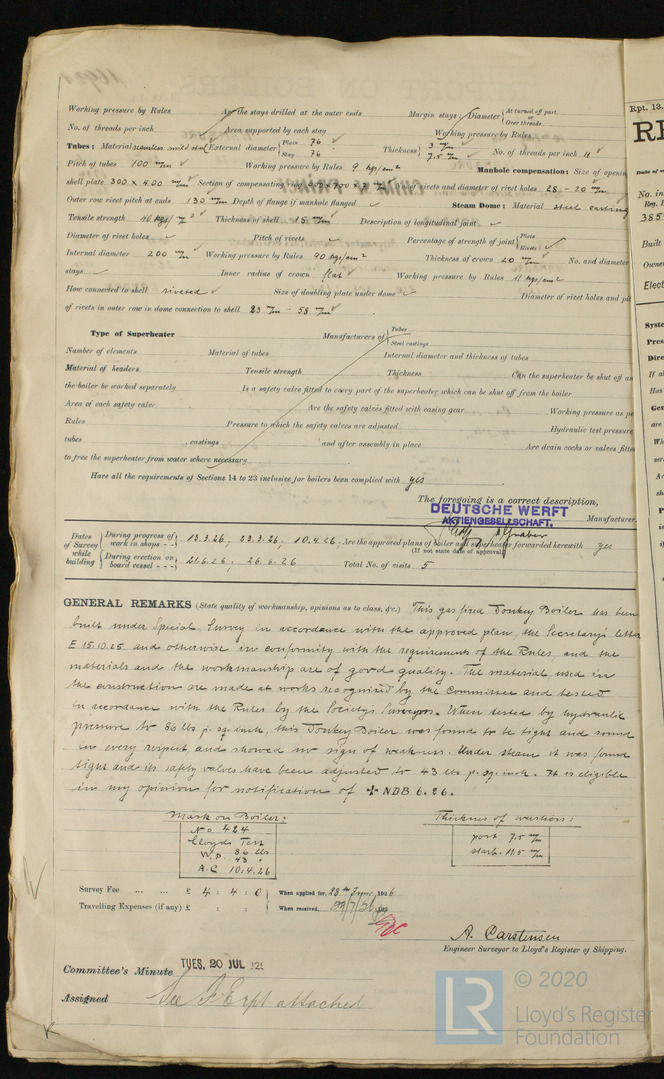 Working pressure by Rules Are the stays drilled at the outer ends Margin stays: Diameter { At turned off part, or Over threads
No. of threads per inch Area supported by each stay Working pressure by Rules
Tubes: Material seamless mild steel External diameter { Plain 76 Stay 76 Thickness { 3 m/m 7.5 m/m No. of threads per inch 11
Pitch of tubes 100 m/m Working pressure by Rules 9 kgs/cm² Manhole compensation: Size of opening
shell plate 300 x 400 m/m Section of compensating ring No. of rivets and diameter of rivet holes 28 - 20 m/m
Outer row rivet pitch at ends 130 m/m Depth of flange if manhole flanged Steam Dome: Material steel casting
Tensile strength 40 kgs/m² Thickness of shell 15 m/m Description of longitudinal joint
Diameter of rivet holes Pitch of rivets Percentage of strength of joint { Plate Rivets
Internal diameter 200 m/m Working pressure by Rules 90 kgs/cm² Thickness of crown 20 m/m No. and diameter
stays Inner radius of crown flat Working pressure by Rules 11 kgs/cm²
How connected to shell riveted Size of doubling plate under dome Diameter of rivet holes and pit
of rivets in outer row in dome connection to shell 23 m/m - 58 m/m
Type of Superheater Manufacturers of { Tubes Steel castings
Number of elements Material of tubes Internal diameter and thickness of tubes
Material of headers Tensile strength Thickness Can the superheater be shut off an
the boiler be worked separately Is a safety valve fitted to every part of the superheater which can be shut off from the boiler
Area of each safety valve Are the safety valves fitted with easing gear Working pressure as pe
Rules Pressure to which the safety valves are adjusted Hydraulic test pressure
tubes , castings and after assembly in place Are drain cocks or valves fitte
to free the superheater from water where necessary
Have all the requirements of Sections 14 to 23 inclusive for boilers been complied with yes
The foregoing is a correct description,
DEUTSCHE WERFT
AKTIENGESELLSCHAFT. Manufacturer.
Dates of Survey while building { During progress of work in shops - - 13.3.26, 23.3.26, 10.4.26, Are the approved plans of boiler and superheater forwarded herewith yes
(If not state date of approval.)
During erection on board vessel - - - 21.6.26, 26.6.26 Total No. of visits 5
GENERAL REMARKS (State quality of workmanship, opinions as to class, &c.) This gas fired Donkey Boiler has been
built under Special Survey in accordance with the approved plan, the Secretary's letter
E 15.10.25 and otherwise in conformity with the requirements of the Rules, and the
materials and the workmanship are of good quality. The material used in
the construction are made at works recognized by the Committee and tested
in accordance with the Rules by the Society's Surveyors. When tested by hydraulic
pressure to 86 lbs p. sq. inch, this Donkey Boiler was found to be tight and sound
in every respect, and showed no sign of weakness. Under steam it was found
tight and its safety valves have been adjusted to 43 lbs p. sq. inch. It is eligible
in my opinion for notification of + NDB 6.26.
Mark on Boiler:
No 424
Lloyds Test
W.P. 86 lbs
43 "
A.C 10.4.26
Thickness of washers:
port 7.5 m/m
starb. 11.5 m/m
Survey Fee ... ... £ 4 : 4 : 0 When applied for, 28th June 1926
Travelling Expenses (if any) £ : : When received,
A. Carstensen
Engineer Surveyor to Lloyd's Register of Shipping.
Committee's Minute TUES, 20 JUL 192
Assigned See F.E. rpt attached
© 2020
LR Lloyd's Register
Foundation
Rpt. 13.
RE
No. in
385
Built
Owne
Elect
Syste
Pres
Dire
If al
Has
Gen
are